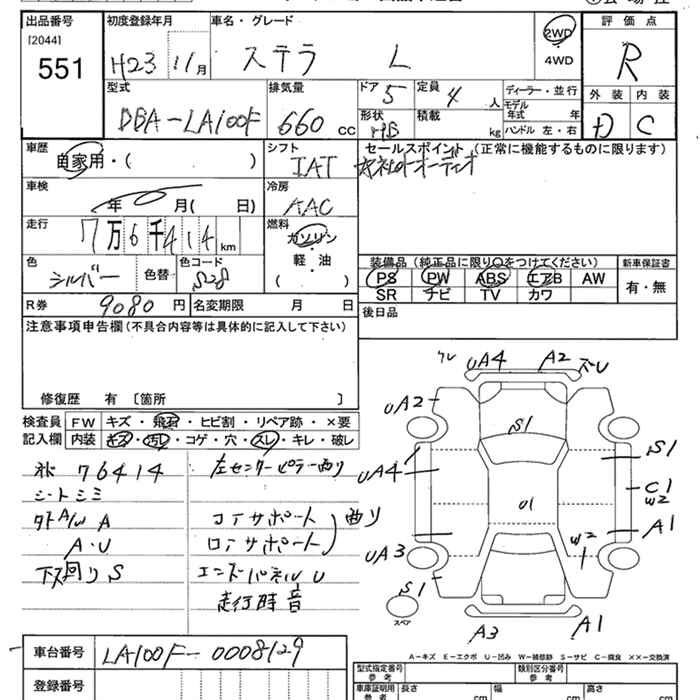 出品番号 初度登録年月 車名・グレード 2WD 評価点
[2044] 551 H23 11月 ステラ L 4WD R
型式 排気量 ドア 5 定員 4人 ディーラー・並行 外装 内装
DBA-LA100F 660cc 形状 HB 積載 kg モデル年式 年 ハンドル 左・右 D C
車歴 シフト セールスポイント(正常に機能するものに限ります)
自家用・( ) IAT
車検 冷房
年 0 月( 日) AAC
走行 燃料
7万6千414km ガソリン・軽・油( )
色 シルバー 色替 色コード S28
装備品(純正品に限り○をつけてください) 新車保証書
PS PW ABS エアB AW 有・無
SR チビ TV カワ
R券 9080円 名変期限 月 日 後日品
注意事項申告欄(不具合内容等は具体的に記入して下さい)
修復歴 有 〔箇所 〕
検査員記入欄 FW キズ・飛石・ヒビ割・リペア跡・×要
内装 キズ・汚レ・コゲ・穴・スレ・キレ・破レ
76414 左センターピラー曲り
シートシミ
外A/W A コアサポート 曲り
A・U ロアサポート
下回りS エンドパネルU
走行時音
UA4 A2 ズレ
UA2
S1
UA4 S1
C1
W2
01
A1
W2
UA3
S1
スペア
A3 A1
A-キズ E-エクボ U-凹み W-補修跡 S-サビ C-腐食 ××-交換済
車台番号 LA100F-0008129
登録番号
型式指定番号 参考 類別区分番号 参考
車庫証明用 参考 長さ cm 幅 cm 高さ cm